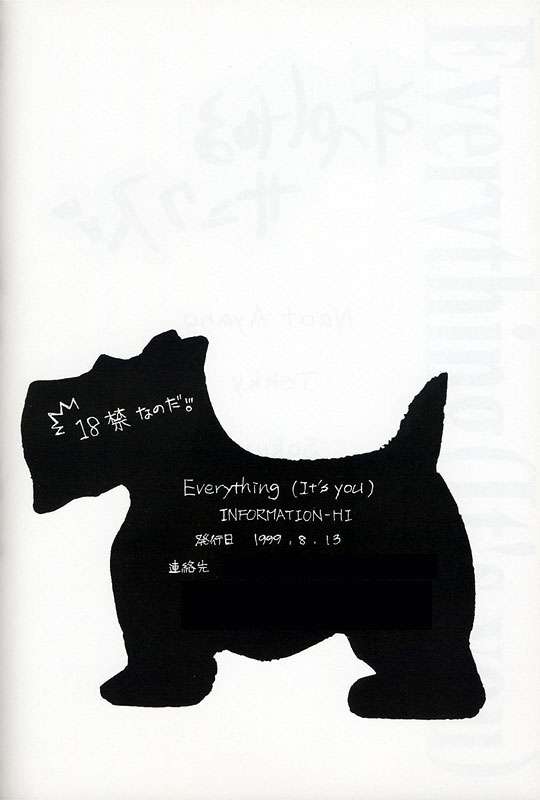 18禁なのだ!!!
Everything (It's you)
INFORMATION-HI
発行日 1999.8.13
連絡先